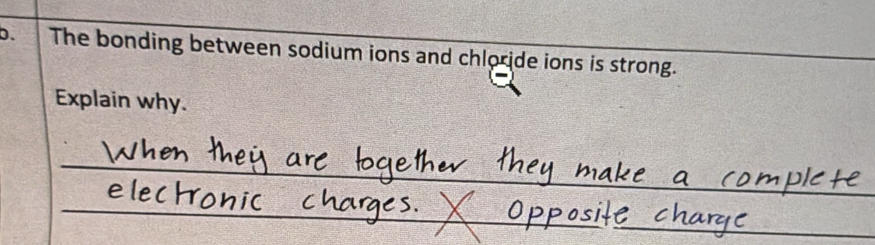 b. The bonding between sodium ions and chloride ions is strong.
Explain why.
When they are together they make a complete
electronic charges. X Opposite charge